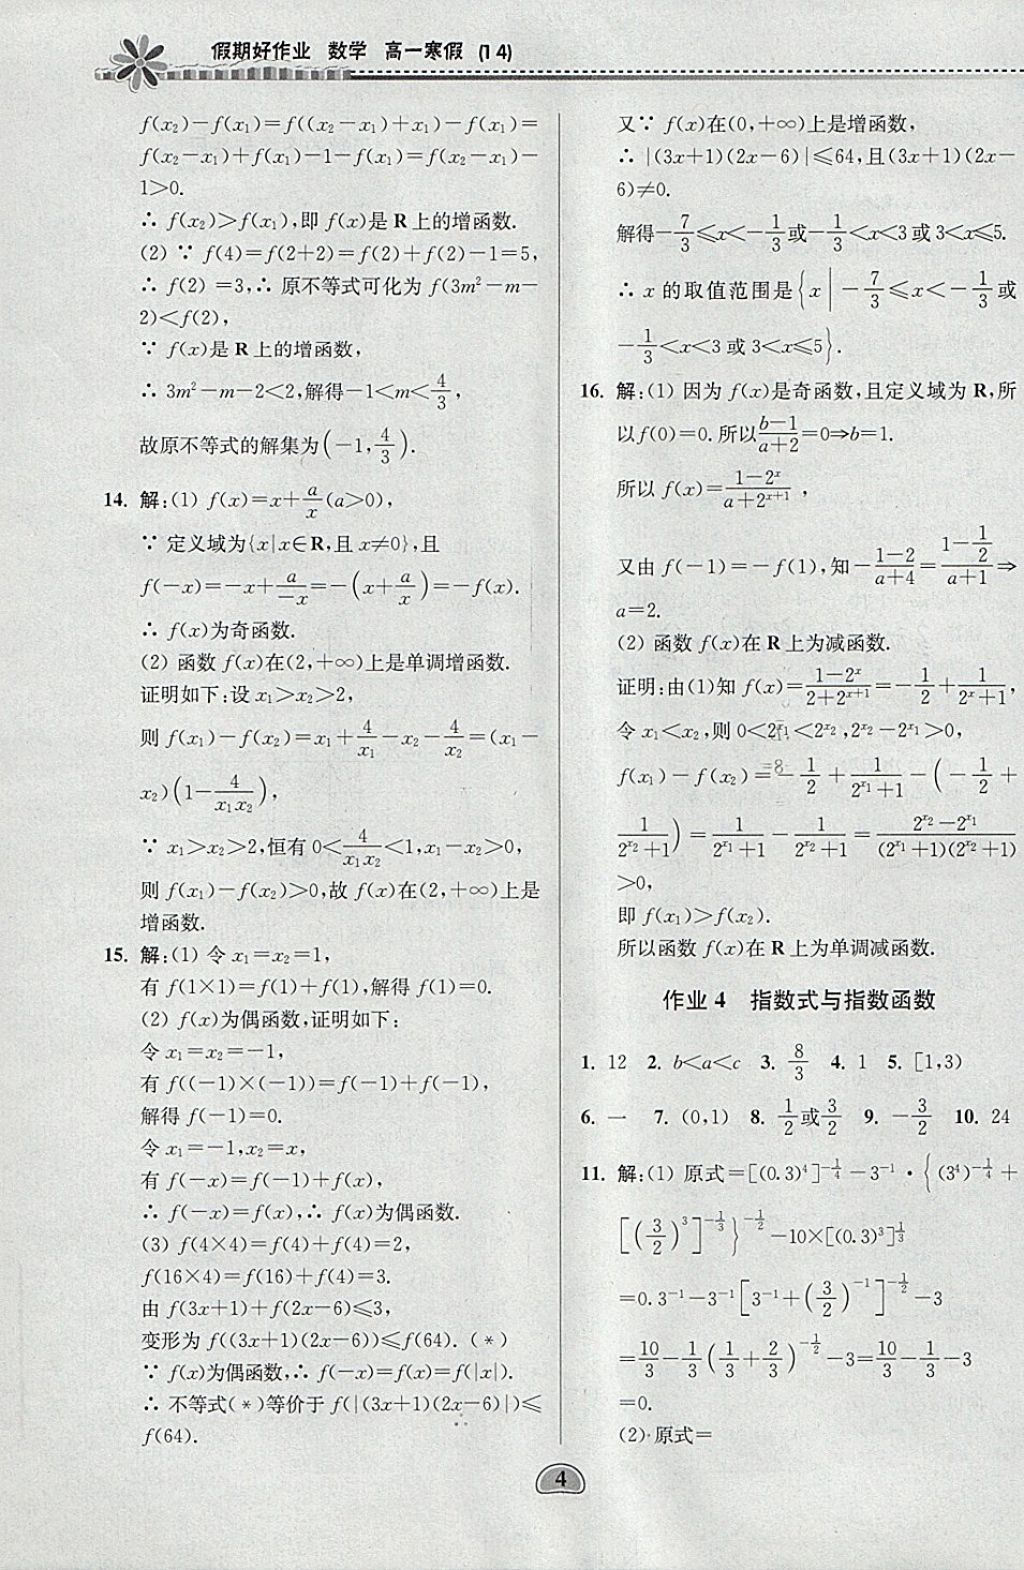 假期好作业 数学 高一寒假 (14)
f(x₂)-f(x₁)=f((x₂-x₁)+x₁)-f(x₁)=
f(x₂-x₁)+f(x₁)-1-f(x₁)=f(x₂-x₁)-
1>0.
∴ f(x₂)>f(x₁),即 f(x)是 R 上的增函数.
(2) ∵ f(4)=f(2+2)=f(2)+f(2)-1=5,
∴ f(2)=3,∴ 原不等式可化为 f(3m²-m-
2)<f(2),
∵ f(x)是 R 上的增函数,
∴ 3m²-m-2<2,解得-1<m<4/3,
故原不等式的解集为(-1,4/3).
14. 解:(1) f(x)=x+a/x(a>0),
∵ 定义域为{x|x∈R,且 x≠0},且
f(-x)=-x+a/(-x)=-(x+a/x)=-f(x).
∴ f(x)为奇函数.
(2) 函数 f(x)在(2,+∞)上是单调增函数.
证明如下:设 x₁>x₂>2,
则 f(x₁)-f(x₂)=x₁+4/x₁-x₂-4/x₂=(x₁-
x₂)(1-4/(x₁x₂)),
∵ x₁>x₂>2,恒有 0<4/(x₁x₂)<1,x₁-x₂>0,
则 f(x₁)-f(x₂)>0,故 f(x)在(2,+∞)上是
增函数.
15. 解:(1) 令 x₁=x₂=1,
有 f(1×1)=f(1)+f(1),解得 f(1)=0.
(2) f(x)为偶函数,证明如下:
令 x₁=x₂=-1,
有 f((-1)×(-1))=f(-1)+f(-1),
解得 f(-1)=0.
令 x₁=-1,x₂=x,
有 f(-x)=f(-1)+f(x),
∴ f(-x)=f(x),∴ f(x)为偶函数.
(3) f(4×4)=f(4)+f(4)=2,
f(16×4)=f(16)+f(4)=3.
由 f(3x+1)+f(2x-6)≤3,
变形为 f((3x+1)(2x-6))≤f(64). (*)
∵ f(x)为偶函数,∴ f(-x)=f(x)=f(|x|).
∴ 不等式(*)等价于 f(|(3x+1)(2x-6)|)≤
f(64).
又∵ f(x)在(0,+∞)上是增函数,
∴ |(3x+1)(2x-6)|≤64,且(3x+1)(2x-
6)≠0.
解得-7/3≤x<-1/3或-1/3<x<3 或 3<x≤5.
∴ x 的取值范围是{x|-7/3≤x<-1/3或
-1/3<x<3 或 3<x≤5}.
16. 解:(1) 因为 f(x)是奇函数,且定义域为 R,所
以 f(0)=0.所以(b-1)/(a+2)=0⇒b=1.
所以 f(x)=(1-2ˣ)/(a+2ˣ⁺¹),
又由 f(-1)=-f(1),知-(1-2)/(a+4)=(1-1/2)/(a+1)⇒
a=2.
(2) 函数 f(x)在 R 上为减函数.
证明:由(1)知 f(x)=(1-2ˣ)/(2+2ˣ⁺¹)=-1/2+1/(2ˣ+1),
令 x₁<x₂,则 0<2^x₁<2^x₂,2^x₂-2^x₁>0,
f(x₁)-f(x₂)=-1/2+1/(2^x₁+1)-(-1/2+
1/(2^x₂+1))=1/(2^x₁+1)-1/(2^x₂+1)=(2^x₂-2^x₁)/((2^x₁+1)(2^x₂+1))
>0,
即 f(x₁)>f(x₂).
所以函数 f(x)在 R 上为单调减函数.
作业 4 指数式与指数函数
1. 12 2. b<a<c 3. 8/3 4. 1 5. [1,3)
6. 一 7. (0,1) 8. 1/2或3/2 9. -3/2 10. 24
11. 解:(1) 原式=[(0.3)⁴]^(-1/4)-3⁻¹·{(3⁴)^(-1/4)+
[(3/2)³]^(-1/3)}^(-1/2)-10×[(0.3)³]^(1/3)
=0.3⁻¹-3⁻¹[3⁻¹+(3/2)⁻¹]^(-1/2)-3
=10/3-1/3(1/3+2/3)^(-1/2)-3=10/3-1/3-3
=0.
(2) 原式=
4